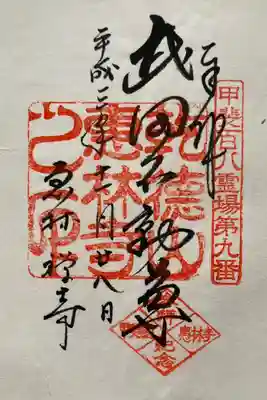 甲斐百八霊場第九番
奉拝
武田不動尊
平成 年十 月廿八日
恵林禅寺
乾德山
惠林寺
之印
記念
惠林寺